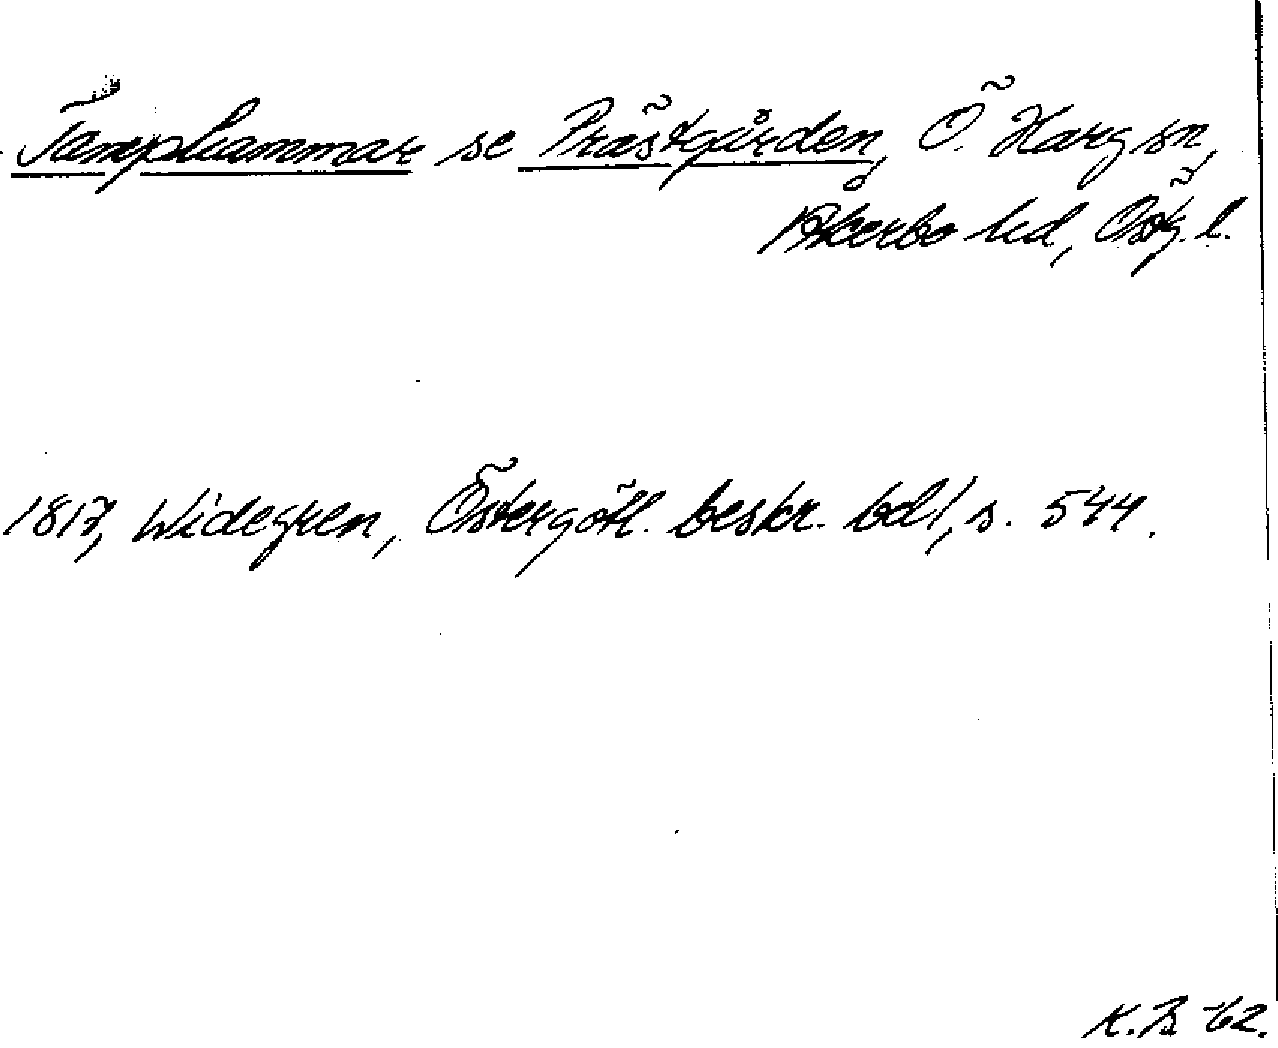 Tamphammar se Prästgården, Ö. Harg sn,
Åkerbo hd, Östg. l.
1817, Widegren, Östergötl. beskr. bd 1, s. 544.
K. B. -62.